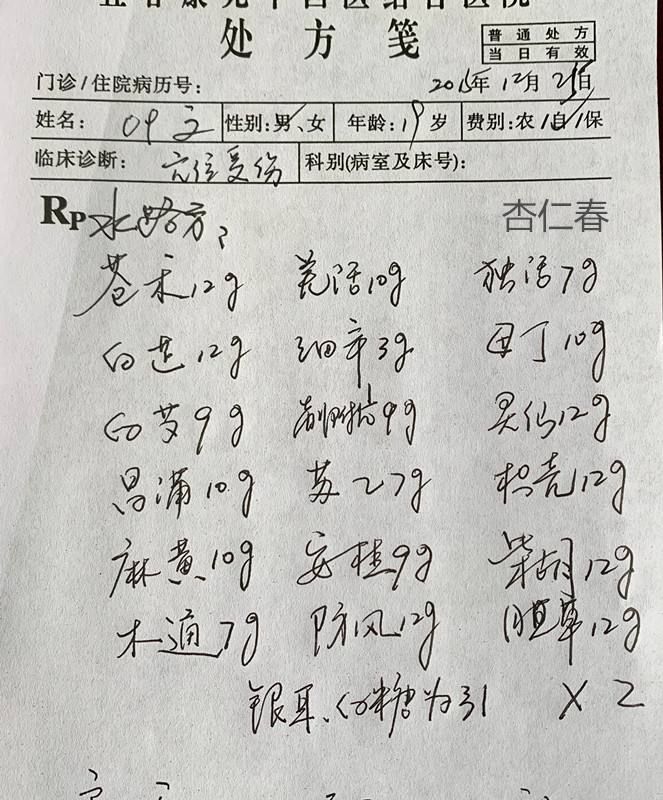 处方笺
普通处方
当日有效
门诊/住院病历号： 2015年12月25日
姓名： 性别：男、女 年龄：19岁 费别：农/自/保
临床诊断：穴位受伤 科别（病室及床号）：
Rp 水路方：
杏仁春
苍术12g 羌活10g 独活7g
白芷12g 细辛3g 母丁10g
白芍9g 9g 灵仙12g
昌蒲10g 苏乙7g 枳壳12g
麻黄10g 安桂9g 柴胡12g
木通7g 防风12g 胆草12g
银耳、白糖为引 X 2